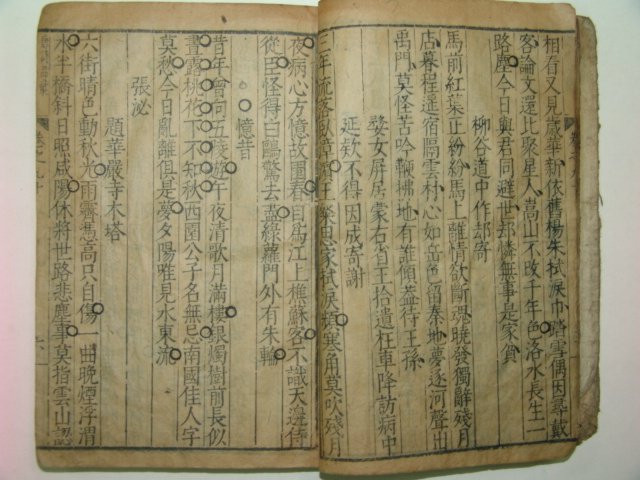 相看又見歲華新依舊楊朱拭淚巾踏雪偶因尋戴
客論文還比聚星人嵩山不改千年色洛水長生一
路塵今日與君同避世却憐無事是家貧
柳谷道中作却寄
馬前紅葉正紛紛馬上離情欲斷魂曉發獨辭殘月
店暮程遙宿隔雲村心如岳色留秦地夢逐河聲出
禹門莫怪苦吟鞭拂地有誰傾蓋待王孫
婺女屏居蒙右省王拾遺杜車降訪病中
延欵不得因成寄謝
三年流落臥漳濱王粲思家拭淚頻寒角莫吹殘月
夜病心方憶故園春自爲江上樵蘇客不識天邊侍
從臣怪得白鷗驚去盡綠蘿門外有朱輪
憶昔
昔年曾向五陵遊午夜清歌月滿樓銀燭樹前長似
晝露桃花下不知秋西園公子名無忌南國佳人字
莫愁今日亂離俱是夢夕陽唯見水東流
張泌
題華嚴寺木塔
六街晴色動秋光雨霽憑高只自傷一曲晚煙浮渭
水半橋斜日照咸陽休將世路悲塵事莫指雲山認